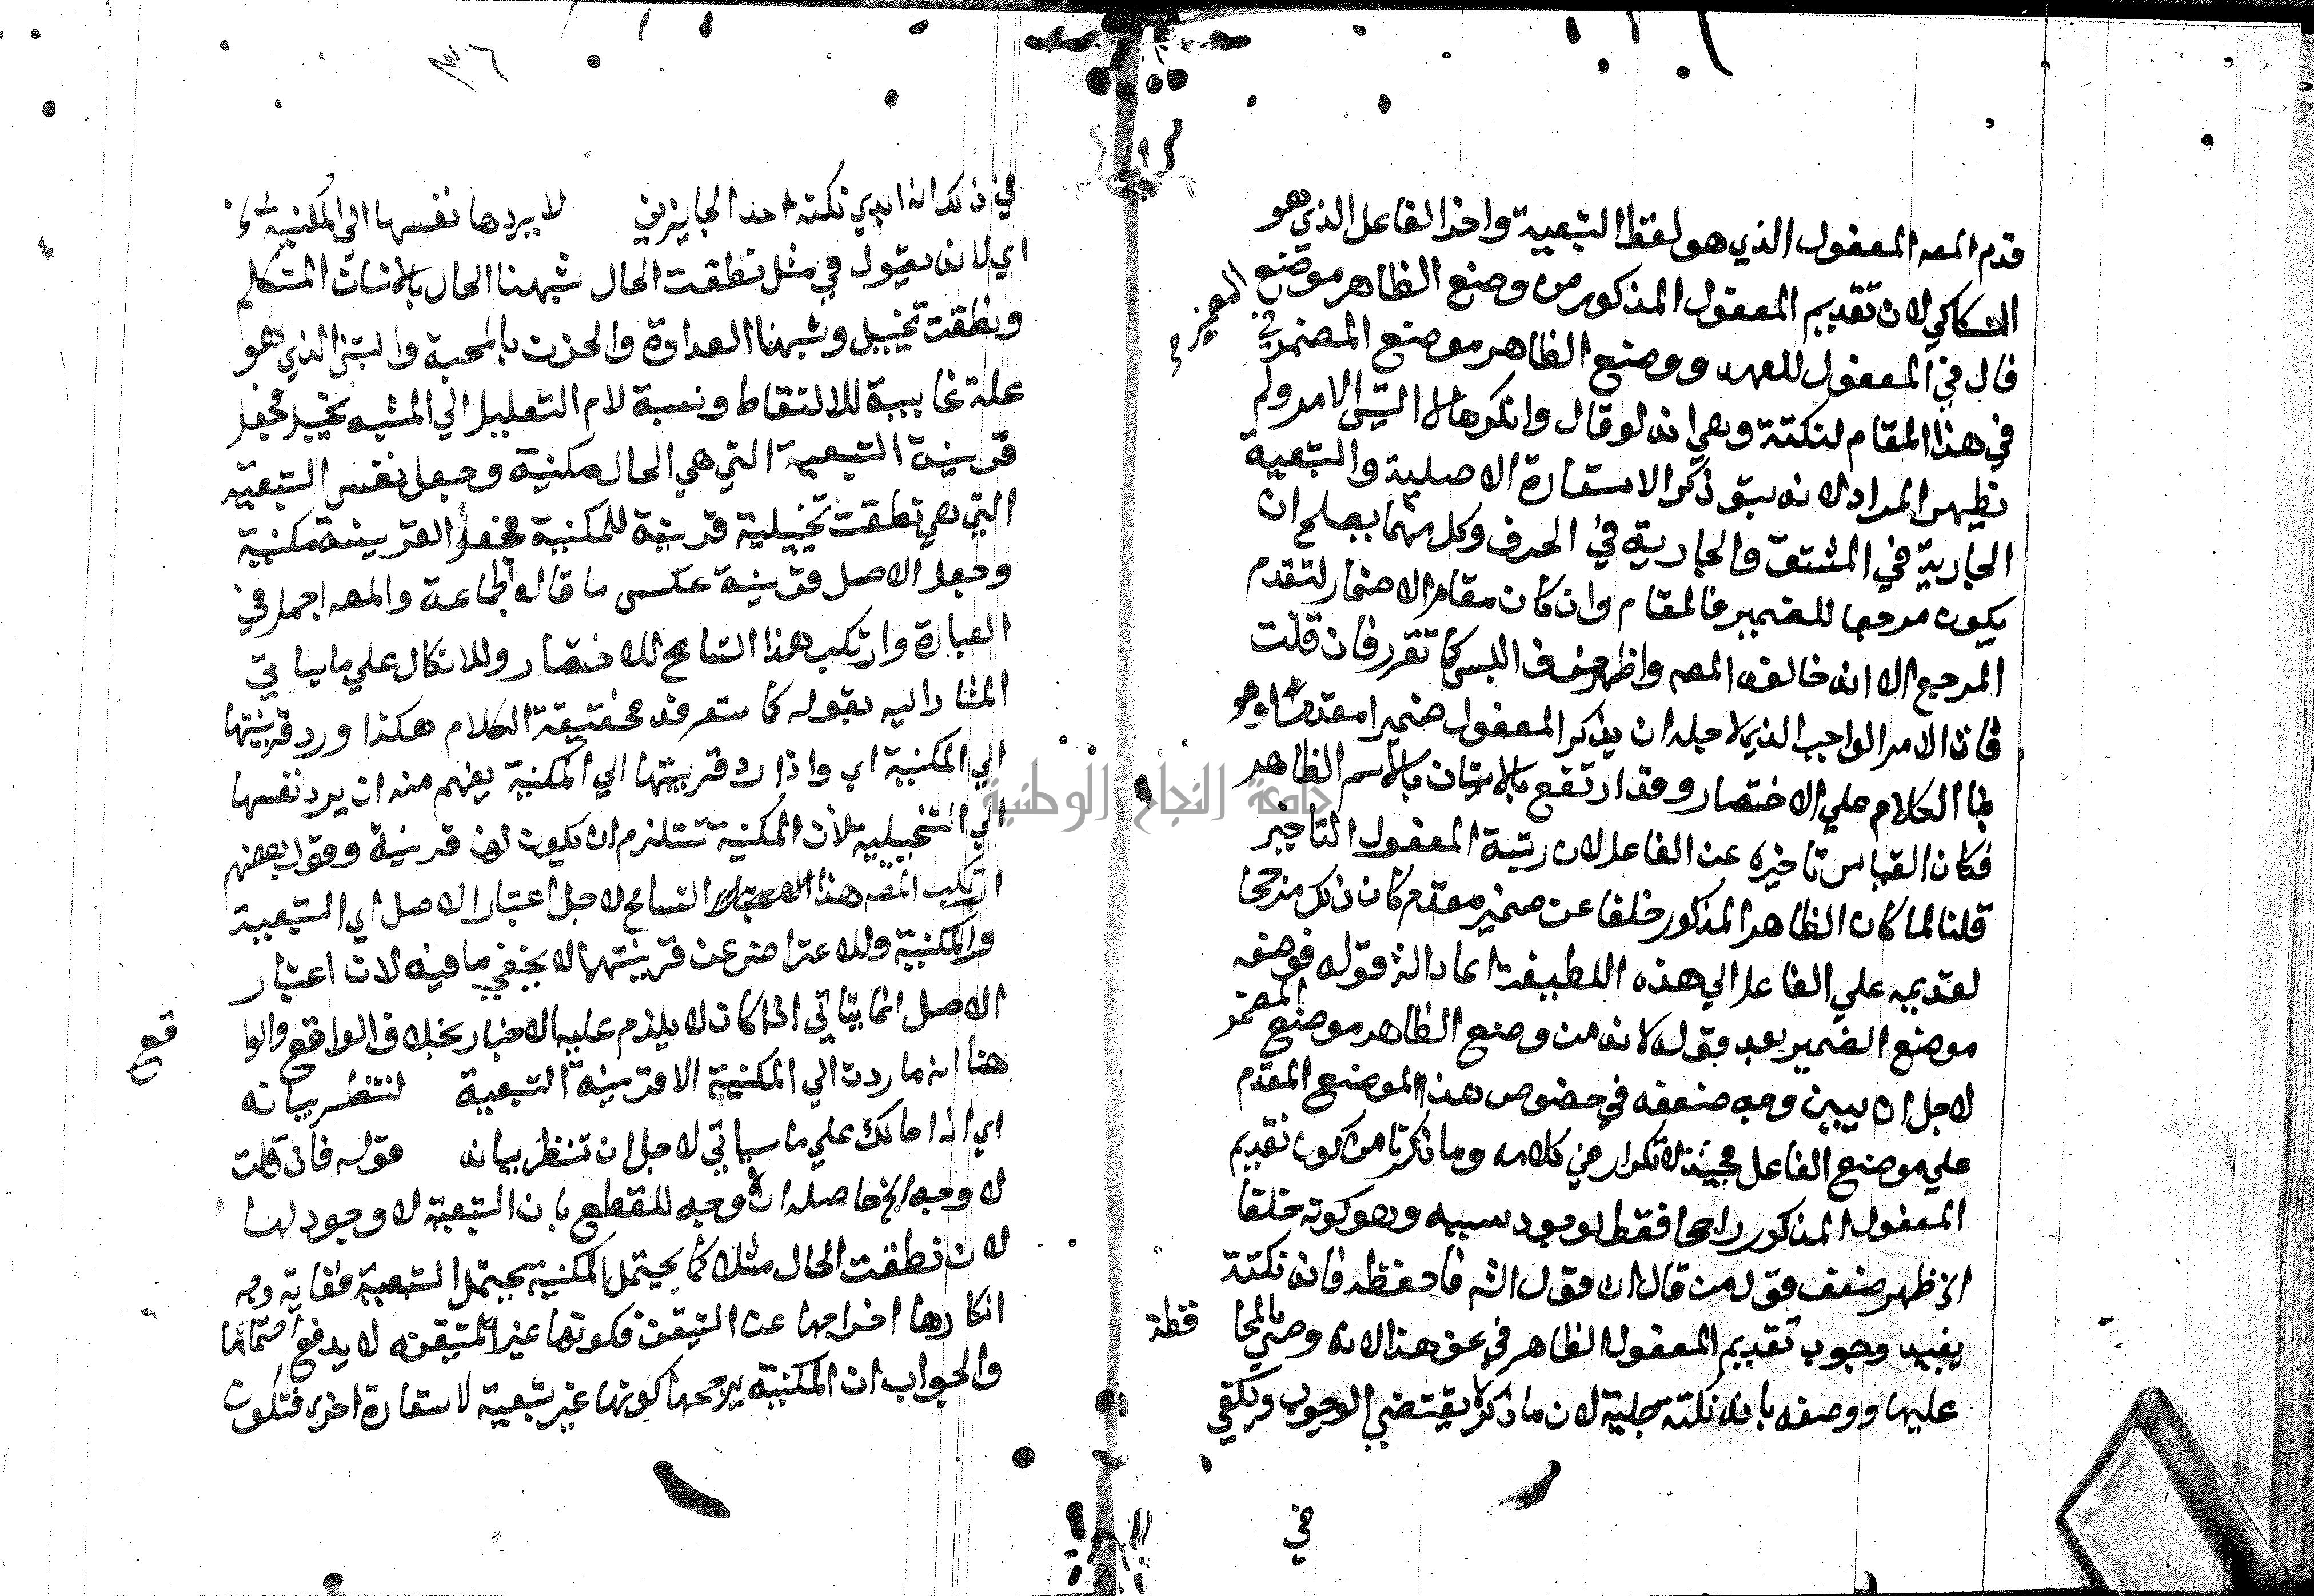 قدم المصه المفعول الذي هو لفظ التبعية واخر الفاعل الذي هو
السكاكي لان تقديم المفعول المذكور من وضع الظاهر موضع
قال في المفعول للعهد ووضع الظاهر موضع المضمر في
في هذا المقام لنكتة وهي انه لو قال وانكرها لا التبس الامر ولم
يظهر المراد لانه سبق ذكر الاستعارة الاصلية والتبعية
الجارية في المشتق والجارية في الحرف وكل منهما يصلح ان
يكون مرجعا للضمير فالمقام وان كان مقام الاضمار لتقدم
المرجع الا انه خالفه المصه واظهر خوف اللبس كما تقرر فان قلت
فان الامر الواجب الذي لاجله ان يذكر المفعول ضميرا مقدما وهو
بنا الكلام علي الاختصار وقد ارتفع بالاتيان بالاسم الظاهر
فكان القياس تاخيره عن الفاعل لان رتبة المفعول التاخير
قلنا لما كان الظاهر المذكور خلفا عن ضمير مقدم كان ذلك مرجحا
لتقديمه علي الفاعل الي هذه اللطيفة اعاد الش قوله فوضعه
موضع الضمير بعد قوله لانه من وضع الظاهر موضع المضمر
لاجل ان يبين وجه ضعفه في خصوص هذا الموضع المقدم
علي موضع الفاعل فحينئذ لا تكرار في كلامه وما ذكرنا من كون تقديم
المفعول المذكور راجحا فقط لوجود سببه وهو كونه خلفا
ظهر ضعف قول من قال ان قول الش فاحفظه فانه نكتة
يفيد وجوب تقديم المفعول الظاهر في هذا لانه وصي بالمحا
فظة
عليها ووصفه بانه نكتة جلية لان ما ذكر لا يقتضي الوجوب ويكفي
في
٣٦
في ذلك انه ابدي نكتة احد الجايزين لا يردها نفسها الي المكنية
اي لانه يقول في مثل نطقت الحال شبهنا الحال بالانسان المتكلم
ونطقت تخييل وشبهنا العداوة والحزن بالمحبة والتبني الذي هو
علة غايية للالتقاط ونسبة لام التعليل الي المشبه تخييل فجعل
قرينة التبعية التي هي الحال مكنية وجعل نفس التبعية
التي هي نطقت تخييلية قرينة للمكنية فجعل القرينة مكنية
وجعل الاصل قرينة عكس ما قاله الجماعة والمصه اجمل في
العبارة وارتكب هذا التسامح للاختصار وللاتكال علي ما سياتي
المشار اليه بقوله كما ستعرفه فحقيقة الكلام هكذا ورد قرينتها
الي المكنية اي واذا رد قرينتها الي المكنية يفهم منه ان يرد نفسها
الي التخييلية لان المكنية تستلزم ان يكون لها قرينة وقول بعضهم
ارتكب المصه هذا التسامح لاجل اعتبار الاصل اي التبعية
والمكنية وللاعتراض عن قرينتهما لا يخفي ما فيه لان اعتبار
الاصل انما يتاتي اذا كان لا يلزم عليه الاخبار بخلاف الواقع والوا
قع
هنا انه ما ردت الي المكنية الا قرينة التبعية لننتظر بيانه
اي انه احالك علي ما سياتي لاجل ان تنتظر بيانه قوله فان قلت
لا وجه الخ حاصله ان لا وجه للقطع بان التبعية لا وجود لها
لان نطقت الحال مثلا كما يحتمل المكنية يحتمل التبعية فغاية وجه
انكارها اخراجها عن التيقن فكونها غير المتيقنة لا يدفع احتمالها
والجواب ان المكنية يرجحها كونها غير تبعية لاستعارة اخري فتكون
جامعة النجاح الوطنية